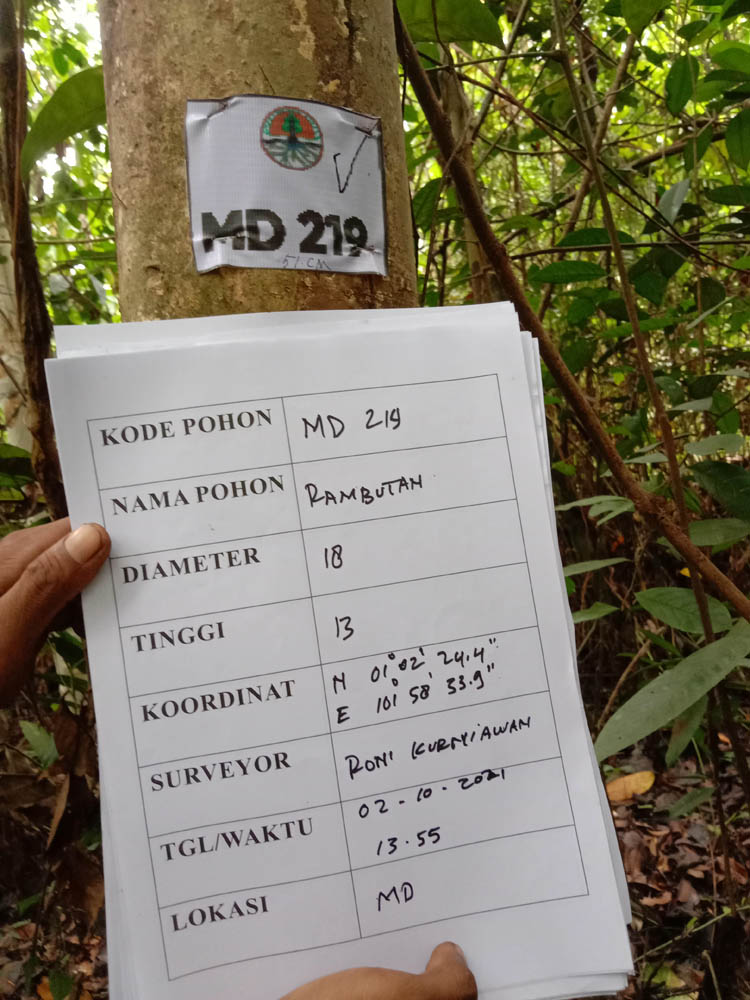 MD 219
51 CM
KODE POHON MD 219
NAMA POHON RAMBUTAN
DIAMETER 18
TINGGI 13
KOORDINAT N 01° 02' 24.4"
E 101° 58' 33.9"
SURVEYOR RONI KURNIAWAN
TGL/WAKTU 02-10-2021
13.55
LOKASI MD